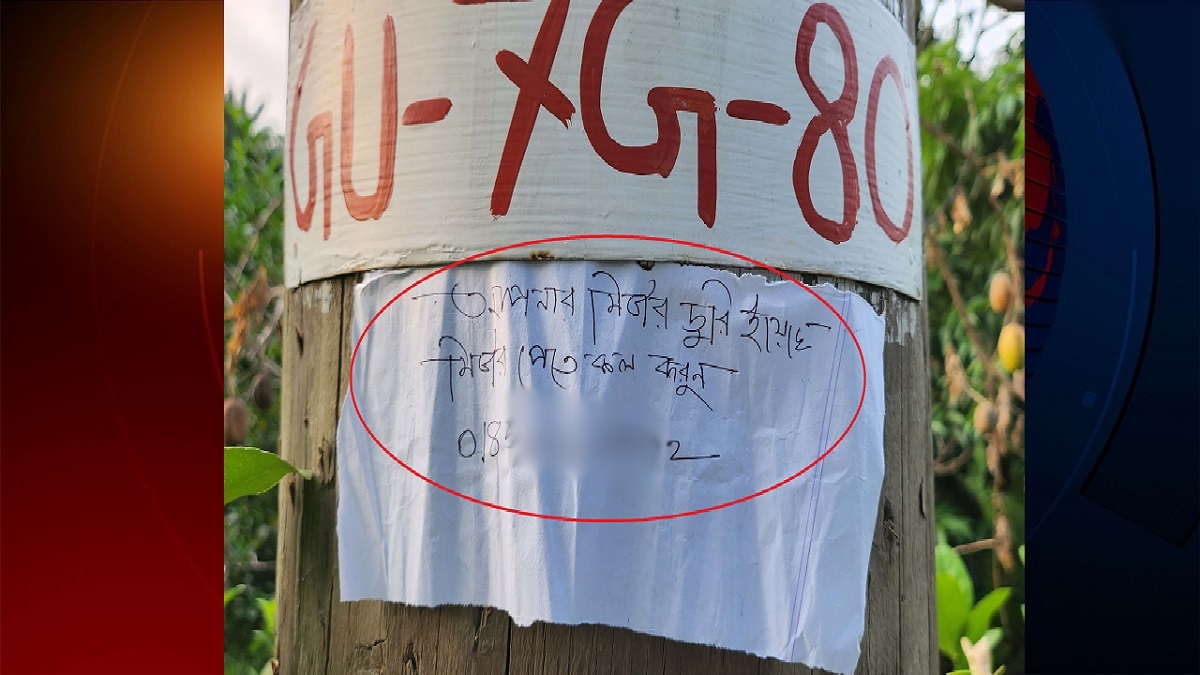 GU-7G-80
আপনার মিটার চুরি হয়েছে
মিটার পেতে কল করুন
018 2